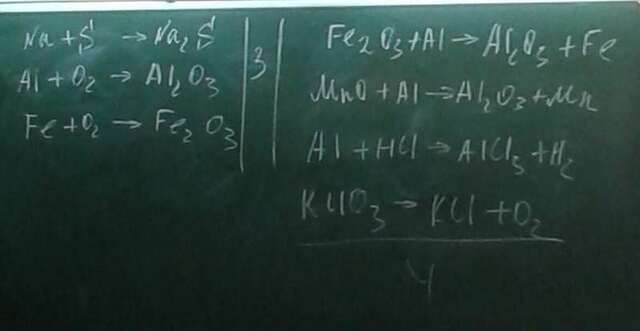 Na + S → Na₂S
Al + O₂ → Al₂O₃
Fe + O₂ → Fe₂O₃
3
Fe₂O₃ + Al → Al₂O₃ + Fe
MnO + Al → Al₂O₃ + Mn
Al + HCl → AlCl₃ + H₂
KClO₃ → KCl + O₂
4